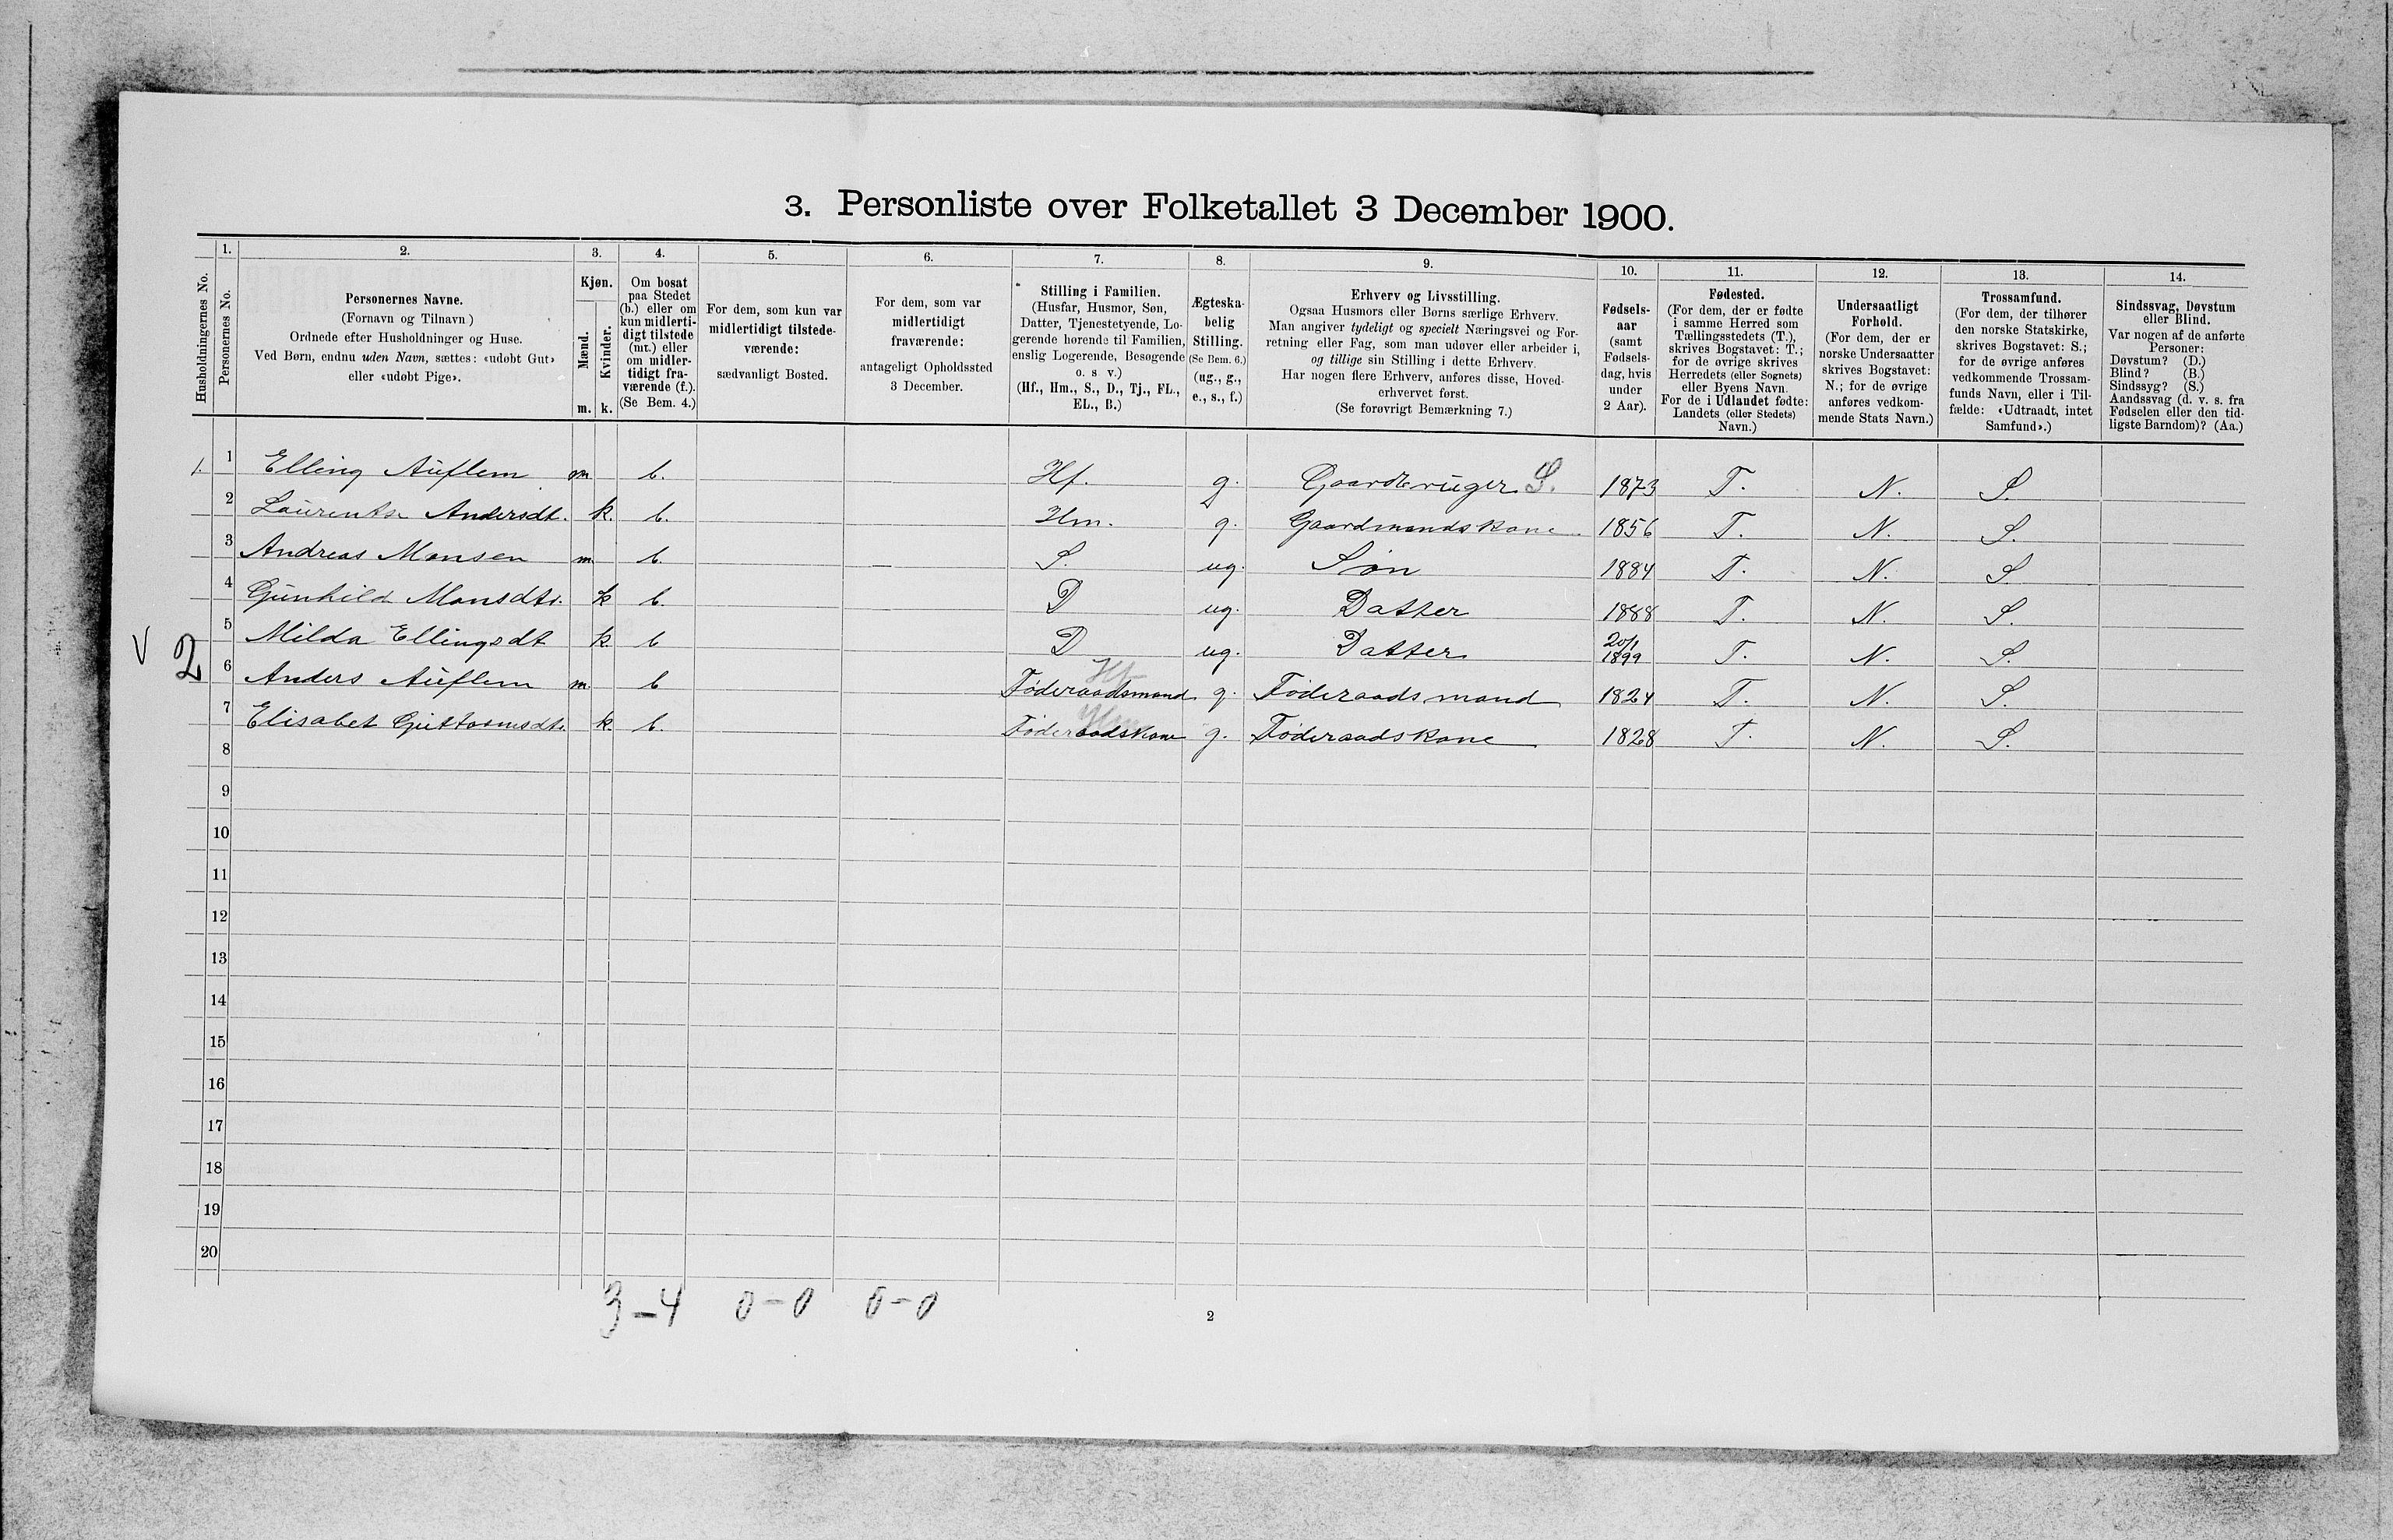 3. Personliste over Folketallet 3 December 1900.
1. 2. 3. 4. 5. 6. 7. 8. 9. 10. 11. 12. 13. 14.
Husholdningernes No.
Personernes No.
Personernes Navne.
(Fornavn og Tilnavn)
Ordnede efter Husholdninger og Huse.
Ved Børn, endnu uden Navn, sættes: «udøbt Gut»
eller «udøbt Pige».
Kjøn.
Mænd.
Kvinder.
m. k.
Om bosat
paa Stedet
(b.) eller om
kun midlerti-
digt tilstede
(mt.) eller
om midler-
tidigt fra-
værende (f.).
(Se Bem. 4.)
For dem, som kun var
midlertidigt tilstede-
værende:
sædvanligt Bosted.
For dem, som var
midlertidigt
fraværende:
antageligt Opholdssted
3 December.
Stilling i Familien.
(Husfar, Husmor, Søn,
Datter, Tjenestetyende, Lo-
gerende hørende til Familien,
enslig Logerende, Besøgende
o. s. v.)
(Hf., Hm., S., D., Tj., FL.,
EL., B.)
Ægteska-
belig
Stilling.
(Se Bem. 6.)
(ug., g.,
e., s., f.)
Erhverv og Livsstilling.
Ogsaa Husmors eller Børns særlige Erhverv.
Man angiver tydeligt og specielt Næringsvei og For-
retning eller Fag, som man udøver eller arbeider i,
og tillige sin Stilling i dette Erhverv.
Har nogen flere Erhverv, anføres disse, Hoved-
erhvervet først.
(Se forøvrigt Bemærkning 7.)
Fødsels-
aar
(samt
Fødsels-
dag, hvis
under
2 Aar).
Fødested.
(For dem, der er fødte
i samme Herred som
Tællingsstedets (T.),
skrives Bogstavet: T.;
for de øvrige skrives
Herredets (eller Sognets)
eller Byens Navn.
For de i Udlandet fødte:
Landets (eller Stedets)
Navn.)
Undersaatligt
Forhold.
(For dem, der er
norske Undersaatter
skrives Bogstavet:
N.; for de øvrige
anføres vedkom-
mende Stats Navn.)
Trossamfund.
(For dem, der tilhører
den norske Statskirke,
skrives Bogstavet: S.;
for de øvrige anføres
vedkommende Trossam-
funds Navn, eller i Til-
fælde: «Udtraadt, intet
Samfund».)
Sindssvag, Døvstum
eller Blind.
Var nogen af de anførte
Personer:
Døvstum? (D.)
Blind? (B.)
Sindssyg? (S.)
Aandssvag (d. v. s. fra
Fødselen eller den tid-
ligste Barndom)? (Aa.)
1. 1 Elling Auflem m b. Hf. g. Gaardbruger S. 1873 T. N. S.
2 Laurentse Andersdt. k. b. Hm. g. Gaardmandskone 1856 T. N. S.
3 Andreas Monsen m b. S. ug. Søn 1884 T. N. S
4 Gunhild Monsdtr. k b. D ug. Datter 1888 T. N. S.
5 Milda Ellingsdt k. b D ug. Datter 20/1 1899 T. N. S.
V 2 6 Anders Auflem m b Hf Føderaadsmand g. Føderaadsmand 1824 T. N. S.
7 Elisabet Guttormsdtr. k. b. Hm Føderaadskone g. Føderaadskone 1828 T. N. S.
8
9
10
11
12
13
14
15
16
17
18
19
20
3-4 0-0 0-0
2